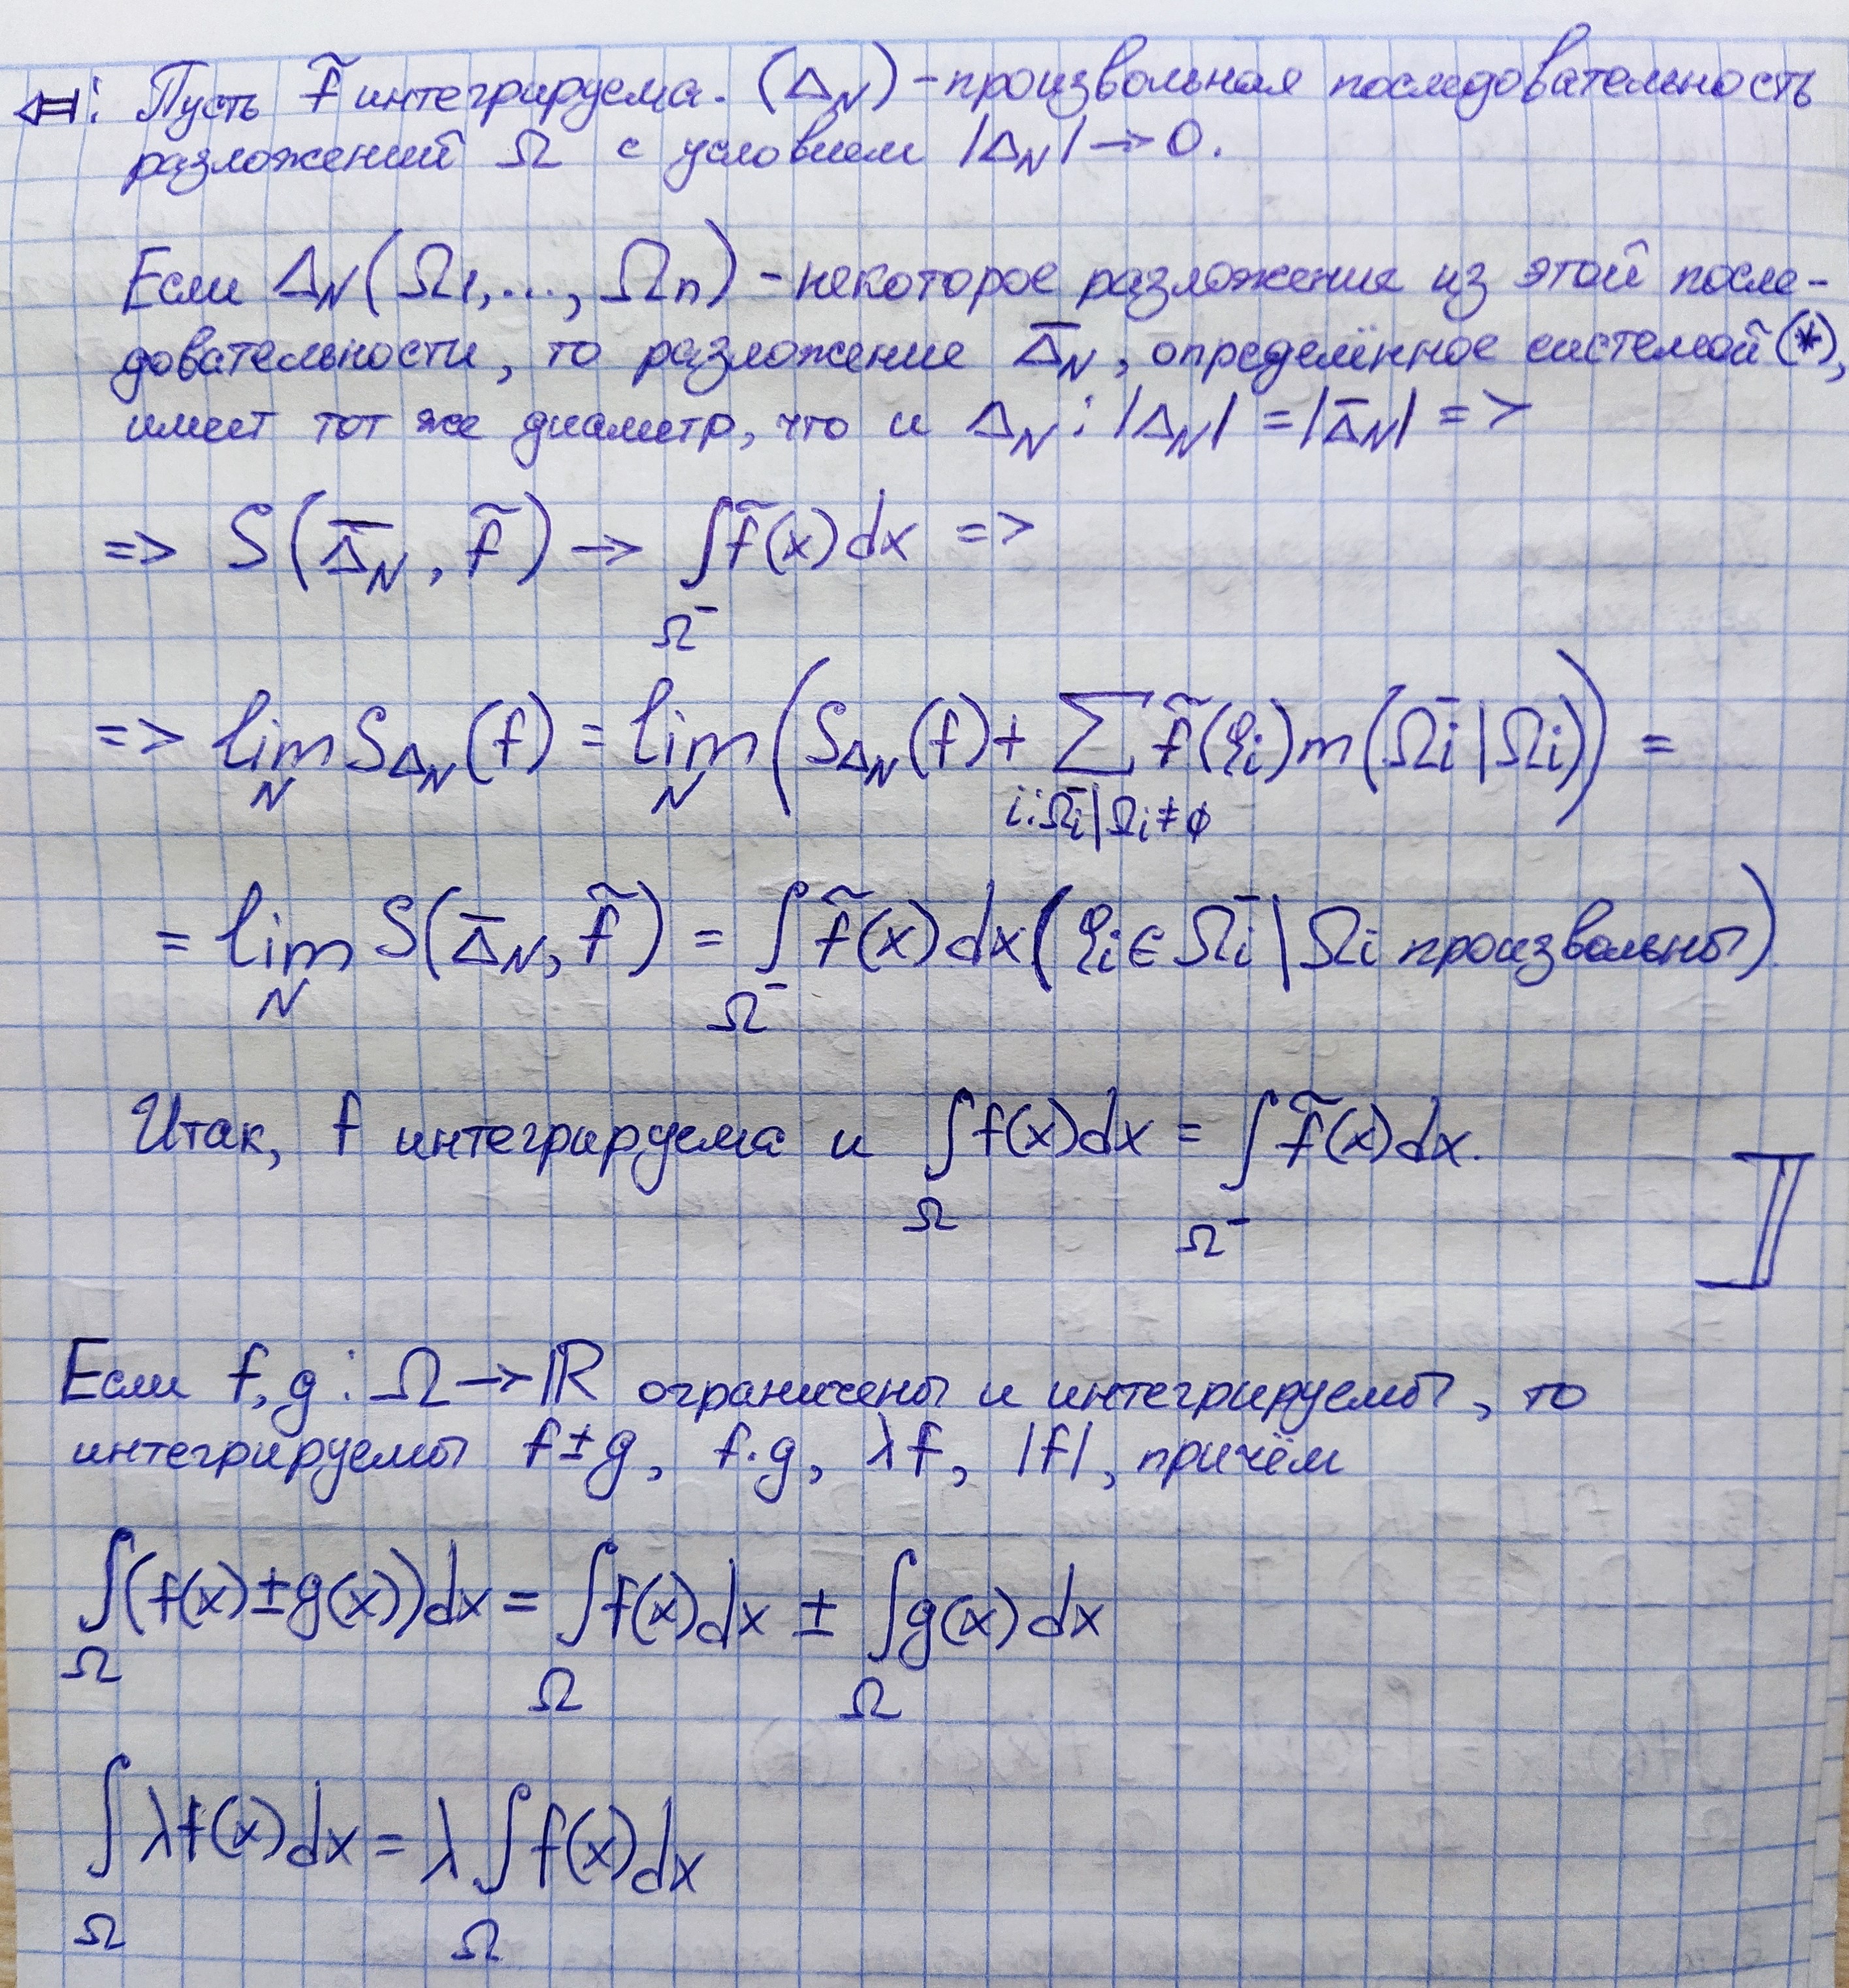 ⇐: Пусть f̃ интегрируема. (Δ_N) - произвольная последовательность
разложений Ω с условием |Δ_N| → 0.
Если Δ_N(Ω₁,..., Ωₙ) - некоторое разложение из этой после-
довательности, то разложение Δ̅_N, определённое системой (*),
имеет тот же диаметр, что и Δ_N : |Δ_N| = |Δ̅_N| =>
=> S(Δ̅_N, f̃) → ∫_{Ω⁻} f̃(x)dx =>
=> lim_N S_{Δ_N}(f) = lim_N (S_{Δ_N}(f) + ∑_{i: Ω_i⁻|Ω_i ≠ ϕ} f̃(ξ_i)m(Ω_i⁻|Ω_i)) =
= lim_N S(Δ̅_N, f̃) = ∫_{Ω⁻} f̃(x)dx (ξ_i ∈ Ω_i⁻|Ω_i произвольны)
Итак, f интегрируема и ∫_Ω f(x)dx = ∫_{Ω⁻} f̃(x)dx.
Если f, g : Ω → ℝ ограничены и интегрируемы, то
интегрируемы f±g, f·g, λf, |f|, причём
∫_Ω (f(x)±g(x))dx = ∫_Ω f(x)dx ± ∫_Ω g(x)dx
∫_Ω λf(x)dx = λ∫_Ω f(x)dx